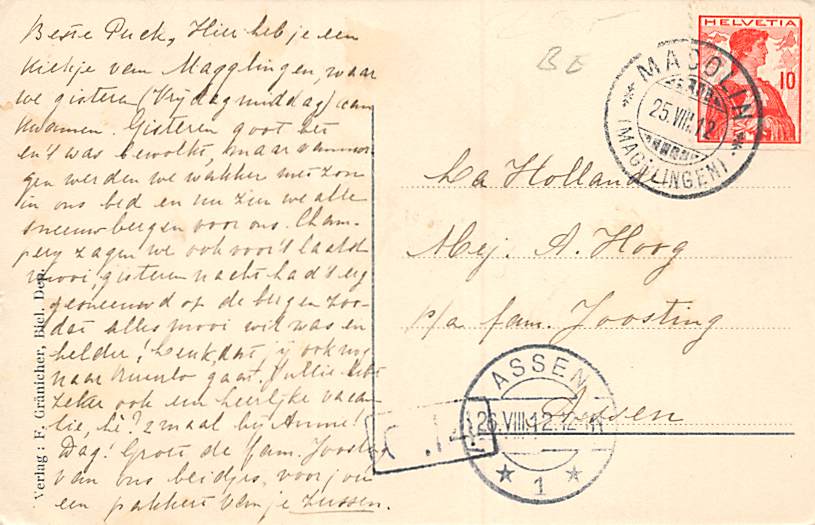 Beste Puck, Hier heb je een
kiekje van Magglingen, waar
we gisteren (Vrijdagmiddag) aan
kwamen. Gisteren goot het
en 't was bewolkt, maar vanmor-
gen werden we wakker met zon
in ons bed en nu zien we alle
sneeuwbergen voor ons. Cham-
pery zagen we ook voor 't laatst
mooi, gisteren nacht had 't erg
gesneeuwd op de bergen zoo-
dat alles mooi wit was en
helder! Leuk, dat jij ook nog
naar Nunlo gaat. Jullie hebt
zeker ook een heerlijke vacan-
tie, hè? 2 maal bij Annie!
Dag! Groet de fam. Joosting
van ons beidjes, voor jou
een pakkert van je Zussen.
Verlag: F. Gränicher, Biel. Dep.
BE
HELVETIA
10
MACOLIN
25.VIII.12
(MAGGLINGEN)
La Hollande
Mej. A. Hoog
p/a fam. Joosting
Assen
ASSEN
26.VIII.12.
1